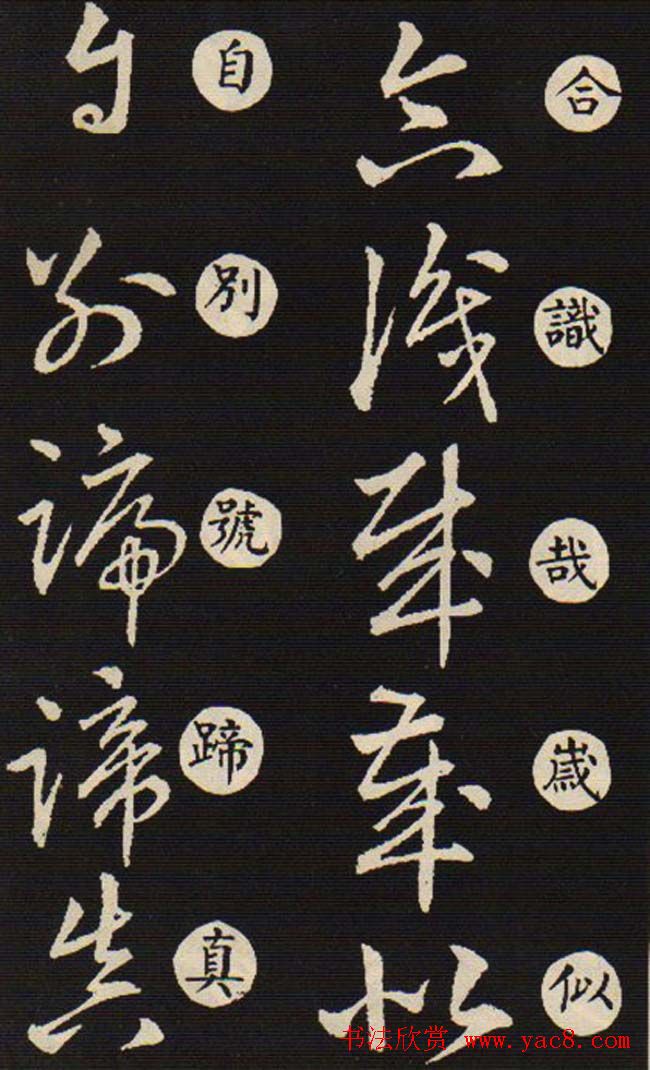 合識哉歲似
自別號蹄真
书法欣赏 www.yac8.com